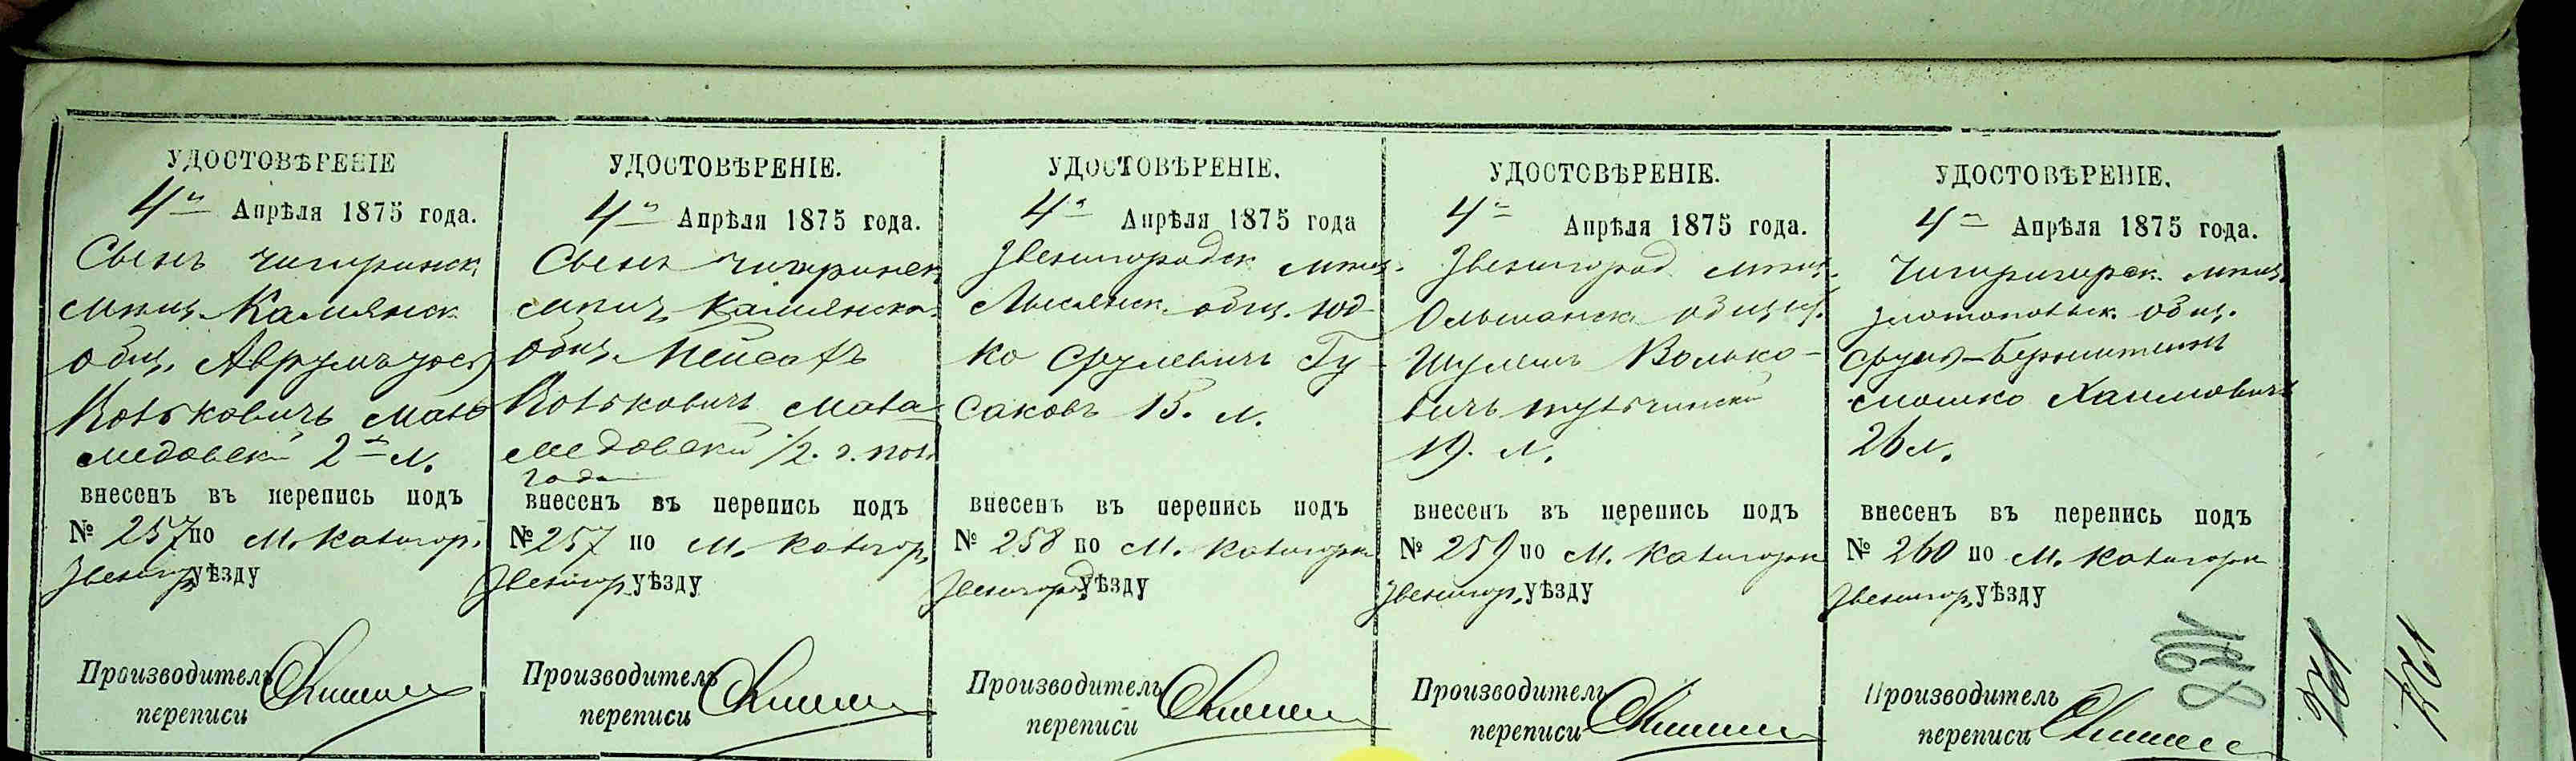 УДОСТОВѢРЕНІЕ
4го Апрѣля 1875 года.
Сынъ Чигиринск.
мѣщ. Камянск
общ. Аврумъ
Вольковичъ
медовски 2 л.
внесенъ въ перепись подъ
№ 257 по м. Катигор.
Звенигор. уѣзду
Производитель
переписи
УДОСТОВѢРЕНІЕ.
4го Апрѣля 1875 года.
Сынъ Чигиринск
мѣщ. Камянско.
общ.
Вольковичъ
медовски 1/2 г.
года
внесенъ въ перепись подъ
№ 257 по м. Катигор.
Звенигор. уѣзду
Производитель
переписи
УДОСТОВѢРЕНІЕ.
4го Апрѣля 1875 года
Звенигородск мѣщ.
Лысянск. общ. Юд-
ко Срулевичъ Гу-
саковъ 15. л.
внесенъ въ перепись подъ
№ 258 по м. Катигорк
Звенигород. уѣзду
Производитель
переписи
УДОСТОВѢРЕНІЕ.
4го Апрѣля 1875 года.
Звенигород мѣщ.
Ольшанск общ.
Шулимъ Волько-
вичъ тульчински
19. л.
внесенъ въ перепись подъ
№ 259 по м. Катигорк
Звенигор. уѣзду
Производитель
переписи
УДОСТОВѢРЕНІЕ.
4го Апрѣля 1875 года.
мѣщ.
Златопольск. общ.
Сруль-Бернштейнъ
Мошко Хаимовичъ
26 л.
внесенъ въ перепись подъ
№ 260 по м. Катигорк
Звенигор. уѣзду
Производитель
переписи